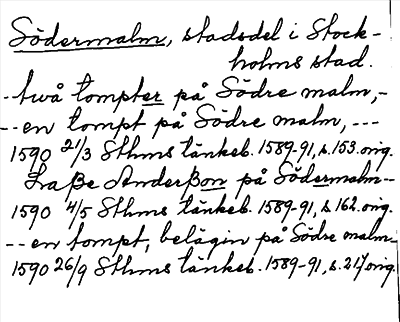 Södermalm, stadsdel i Stock-
holms stad.
--twå tompter på Södre malm,-
--en tompt på Södre malm, ---
1590 21/3 Sthms tänkeb. 1589-91, s. 153. orig.
Laße Anderßon på Södermalm--
1590 4/5 Sthms tänkeb. 1589-91, s. 162. orig.
--en tompt, belägin på Södre malm-
1590 26/9 Sthms tänkeb. 1589-91, s. 217 orig